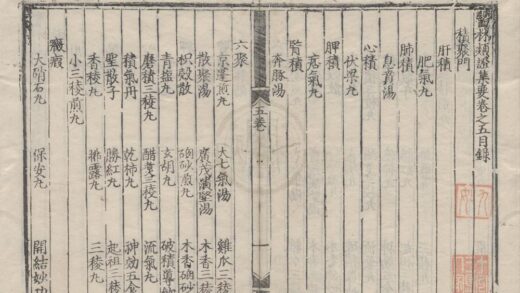 醫林類證集要卷之五目錄
積聚門
肝積
肥氣丸
肺積
息賁湯
心積
伏梁丸
脾積
痞氣丸
腎積
奔豚湯
五卷
一
六聚
京墨煎丸 大七氣湯 雞爪三稜
散聚湯 廣茂潰堅湯 木香三稜
枳殼散 硇砂煎丸 木香硇砂
玄胡丸 破積導
磨積三稜丸 醋煮三稜丸 流氣丸
積氣丹 乾柿丸 神効五食
聖散子 勝紅丸 起祖三稜
香稜丸 三稜丸
小三稜煎丸
癥瘕
大硝石丸 保安丸 開結妙功